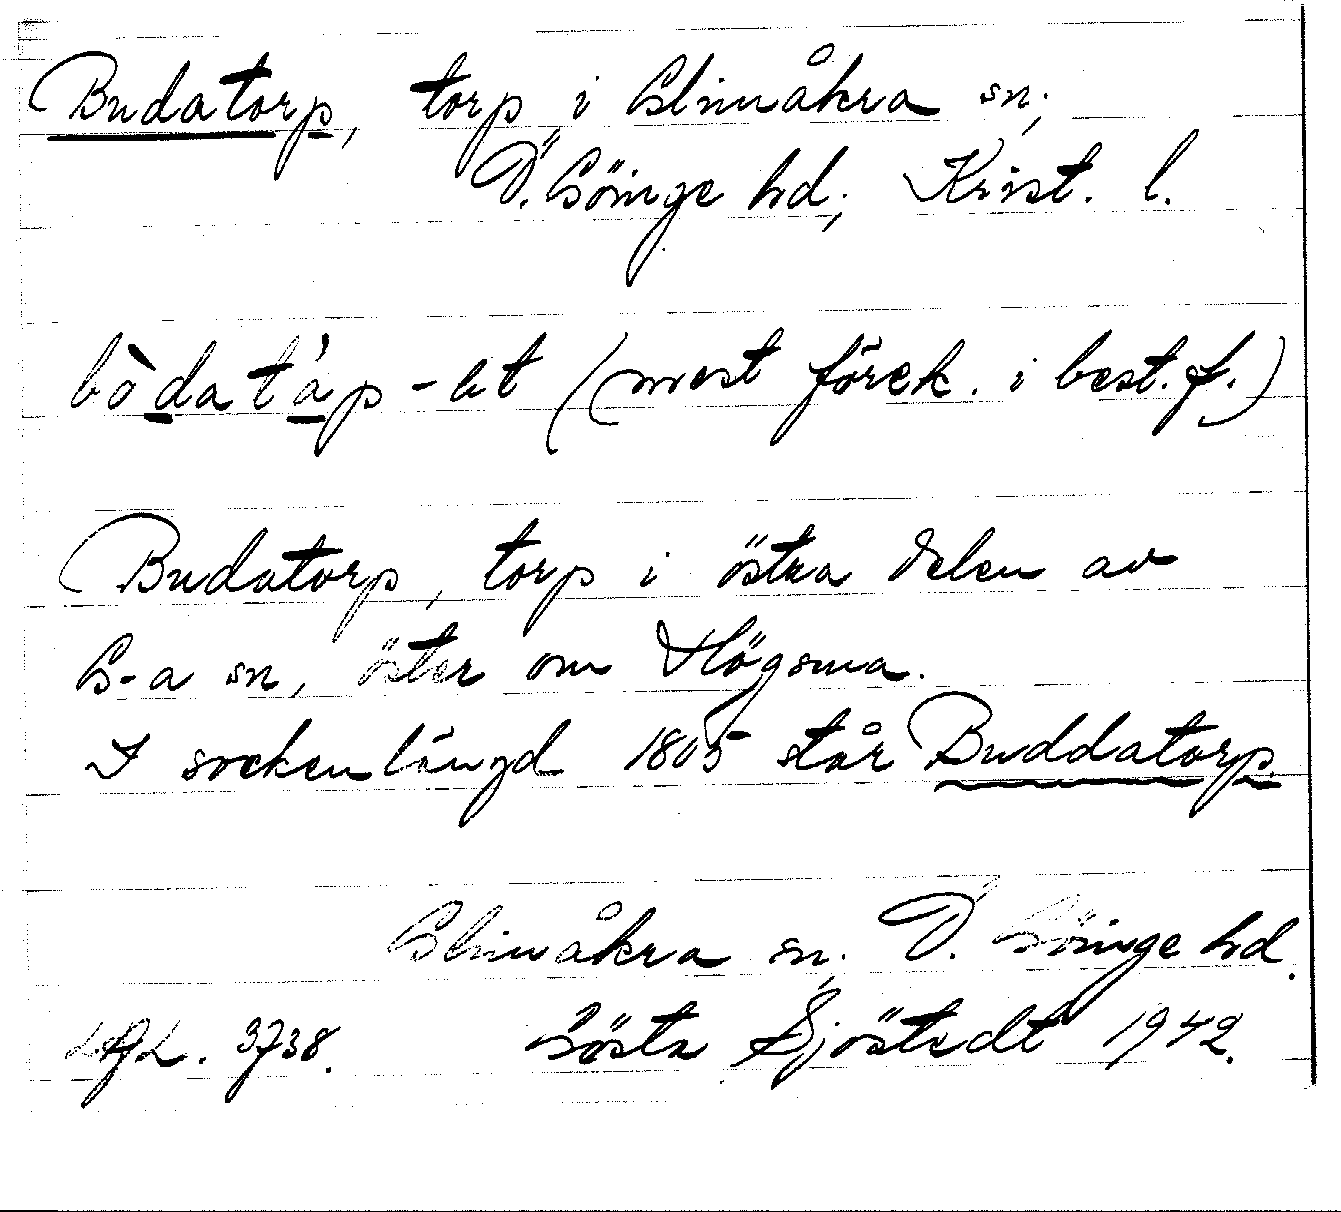 Budatorp, torp i Glimåkra sn;
Ö. Göinge hd; Krist. l.
bòdatàp -et (mest förek. i best. f.)
Budatorp, torp i östra delen av
G-a sn, öster om Högsma.
I sockenlängd 1805 står Buddatorp
Glimåkra sn; Ö. Göinge hd.
3738. Gösta Sjöstedt 1942.